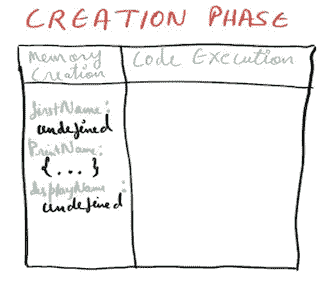 CREATION PHASE
Memory Creation
Code Execution
firstName:
undefined
PrintName:
{...}
displayName:
undefined